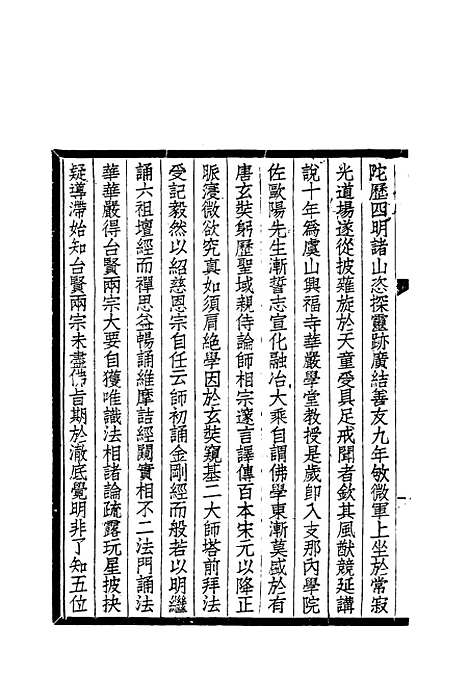 陀歷四明諸山恣探靈跡廣結善友九年敏微軍上坐於常寂
光道場遂從披薙旋於天童受具足戒聞者欽其風猷競延講
說十年爲虞山興福寺華嚴學堂教授是歲卽入支那內學院
佐歐陽先生漸誓志宣化融冶大乘自謂佛學東漸莫盛於有
唐玄奘躬歷聖域親侍論師相宗邃言譯傳百本宋元以降正
脈寖微欲究真如須肩絶學因於玄奘窺基二大師塔前拜法
受記毅然以紹慈恩宗自任云師初誦金剛經而般若以明繼
誦六祖壇經而禪思益暢誦維摩詰經闚實相不二法門誦法
華華嚴得台賢兩宗大要自獲唯識法相諸論疏露玩星披抉
疑導滯始知台賢兩宗未盡佛旨期於澈底覺明非了知五位